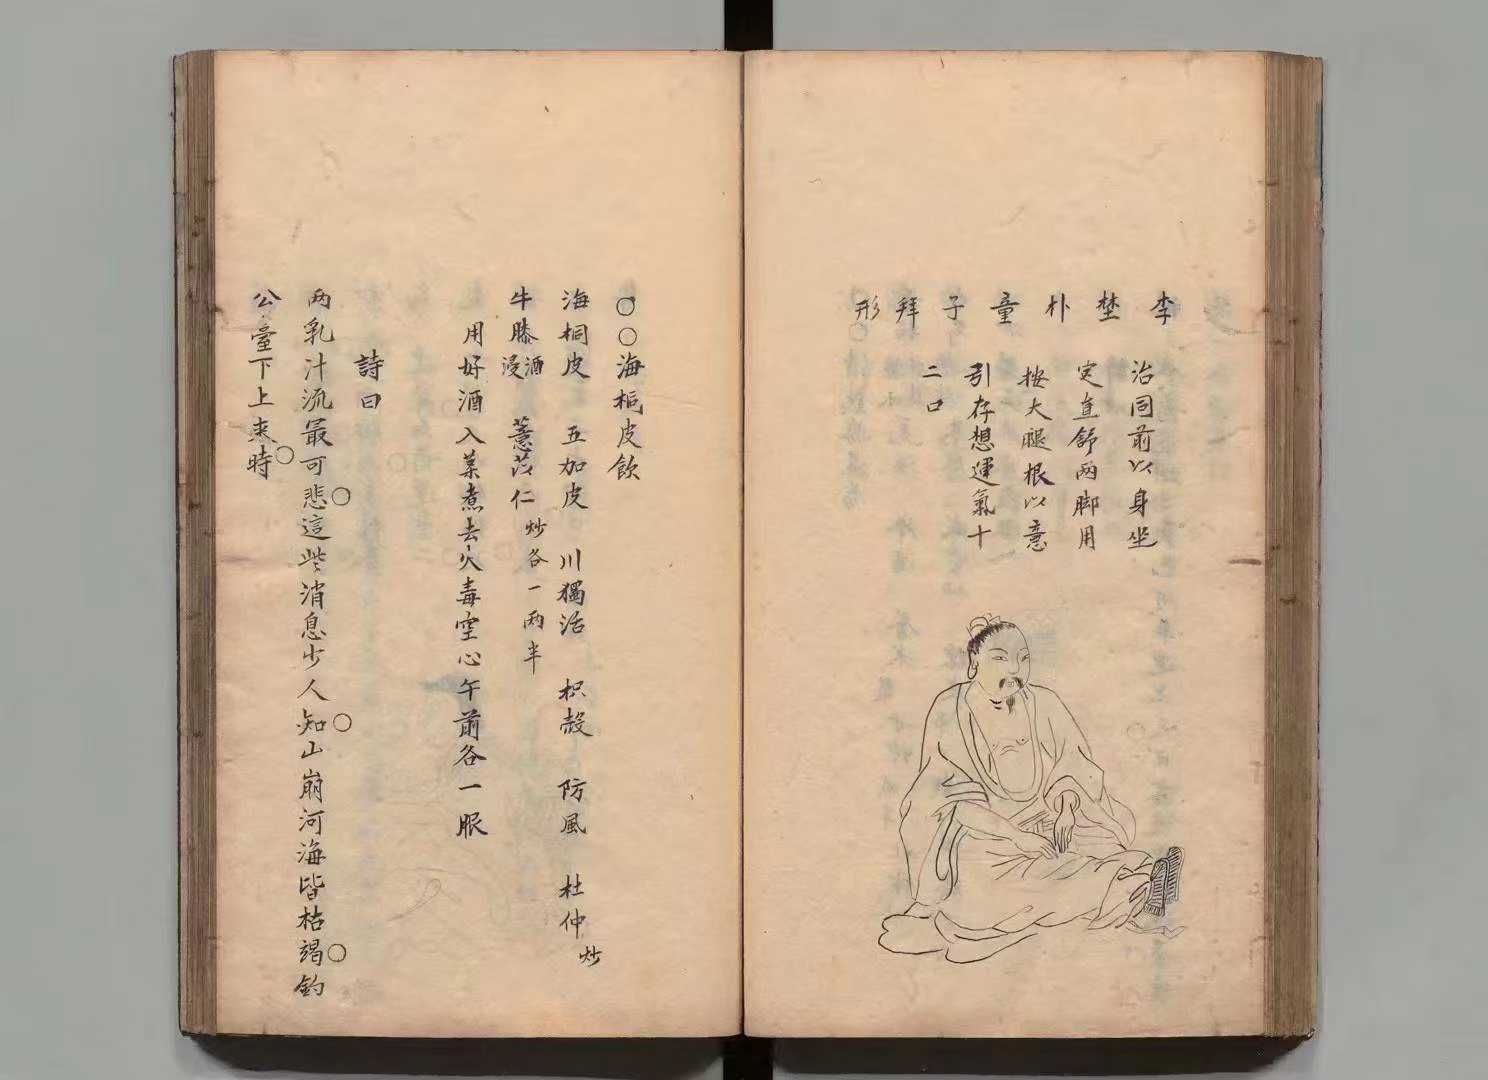 李埜朴童子拜形
治同前以身坐
定直舒两脚用
按大腿根以意
引存想運氣十
二口
○○海桐皮飲
海桐皮 五加皮 川獨活 枳殻 防風 杜仲炒
牛膝酒浸 薏苡仁炒各一两半
用好酒入藥煮去火毒空心午前各一服
詩曰
两乳汁流最可悲○這些消息少人知○山崩河海皆枯竭○釣
公臺下上來時○